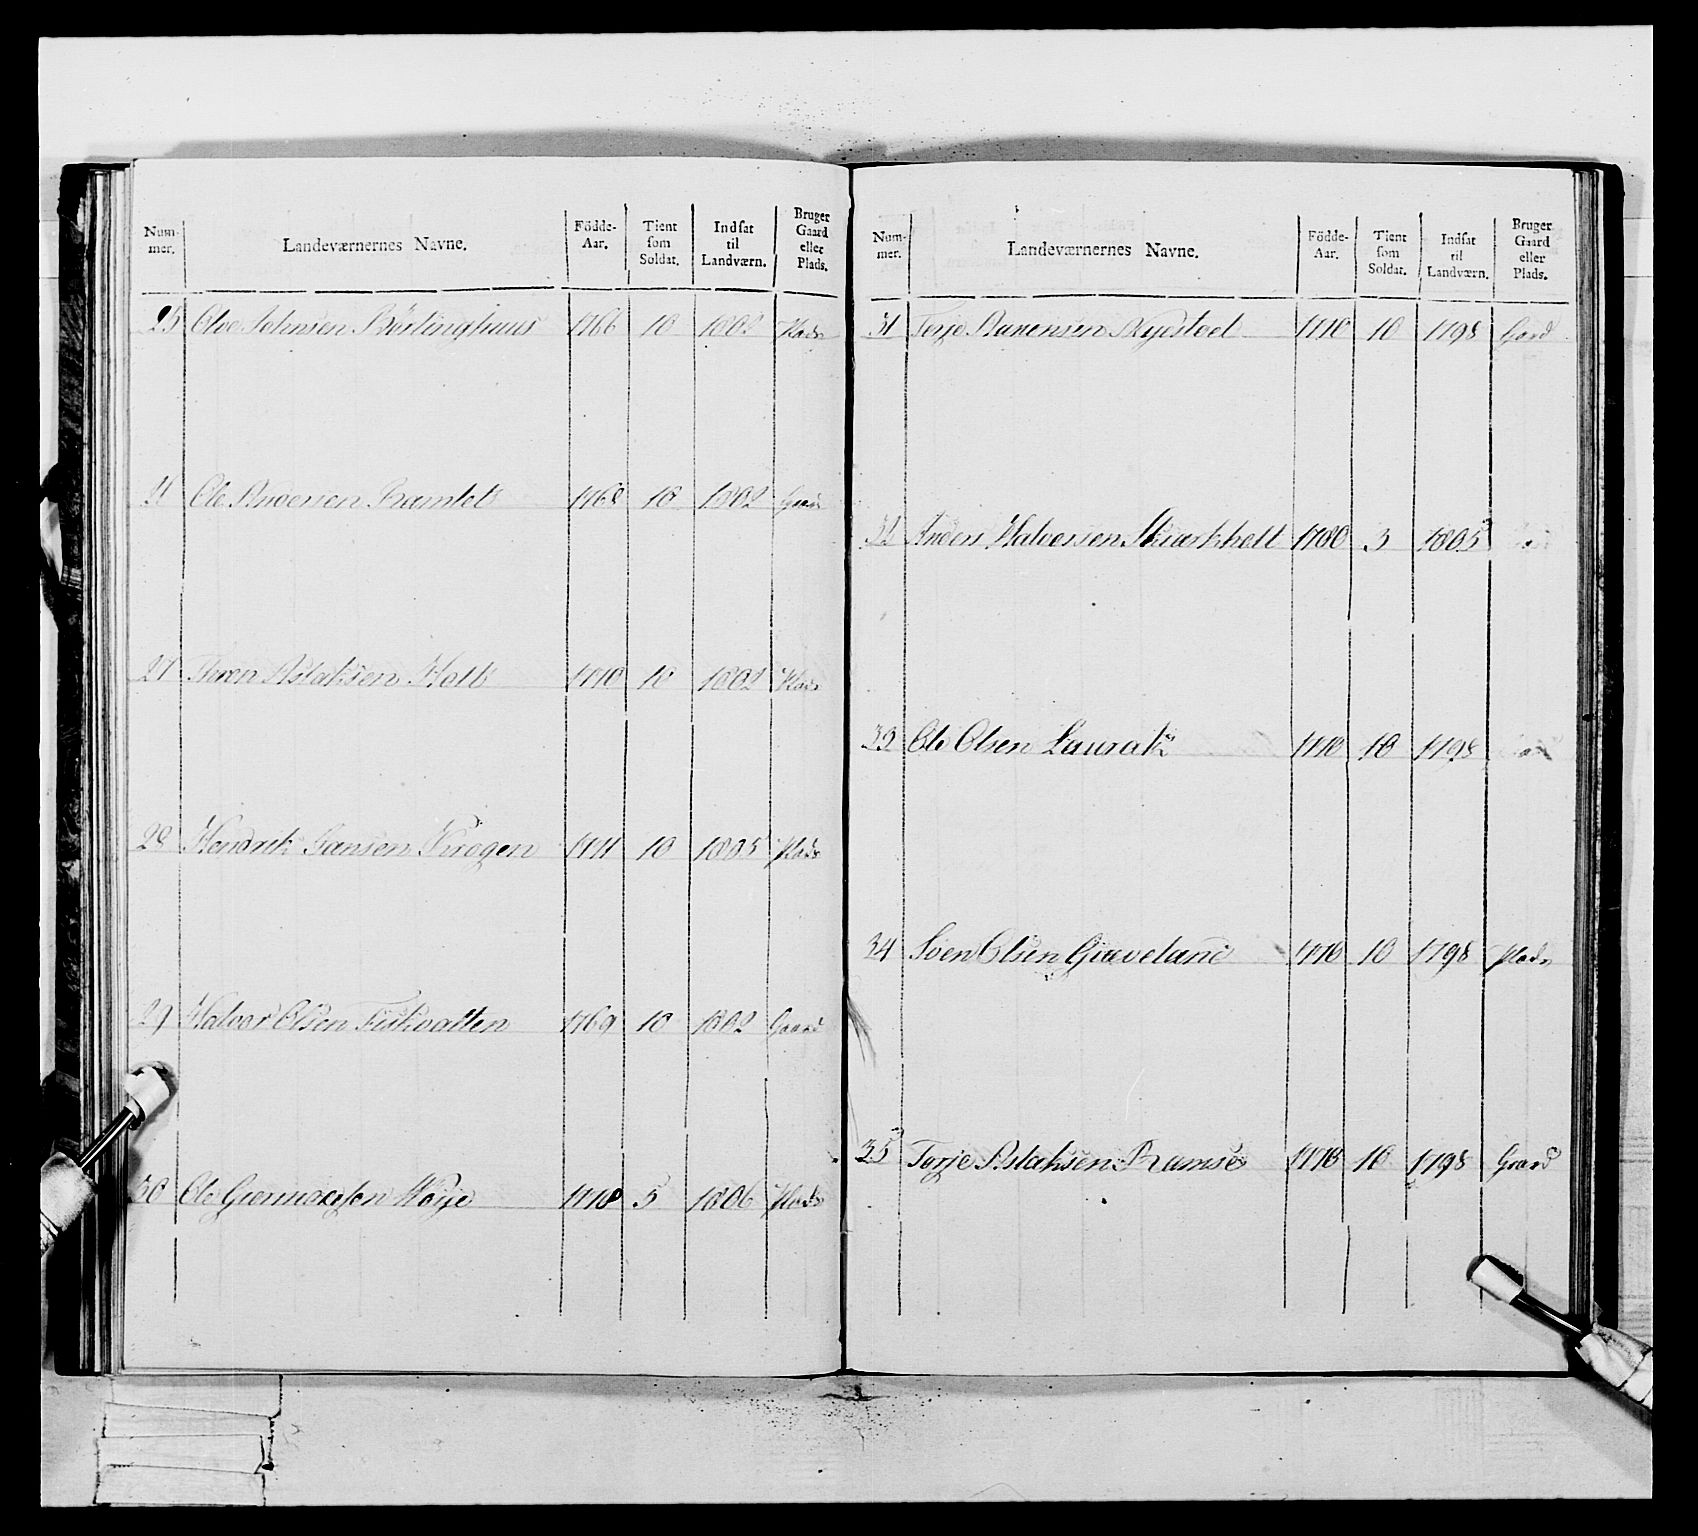 Num-mer. Landeværnernes Navne. Födde-Aar. Tient som Soldat. Indsat til Landværn. Bruger Gaard eller Plads.
25 Ole Johnsen Börtinghuus 1766 10 1802 Plads
Ole Andersen Ramtet 1768 10 1802 Gaard
27 Aslaksen Holt 1770 10 1802 Plads
28 Hendrik Jansen Krogen 1771 10 1805 Plads
29 Halvor Olsen Fiskvatten 1769 10 1802 Gaard
30 Ole 1778 5 1806 Plads
Num-mer. Landeværnernes Navne. Födde-Aar. Tient som Soldat. Indsat til Landværn. Bruger Gaard eller Plads.
31 Terje 1770 10 1798 Gard
32 Anders Halvorsen 1780 3 1805
33 Ole Olsen Laurak 1770 10 1798
34 Svен Olsen Græveland 1776 10 1798 Plads
35 Terje Aslaksen Ramse 1770 10 1798 Graard